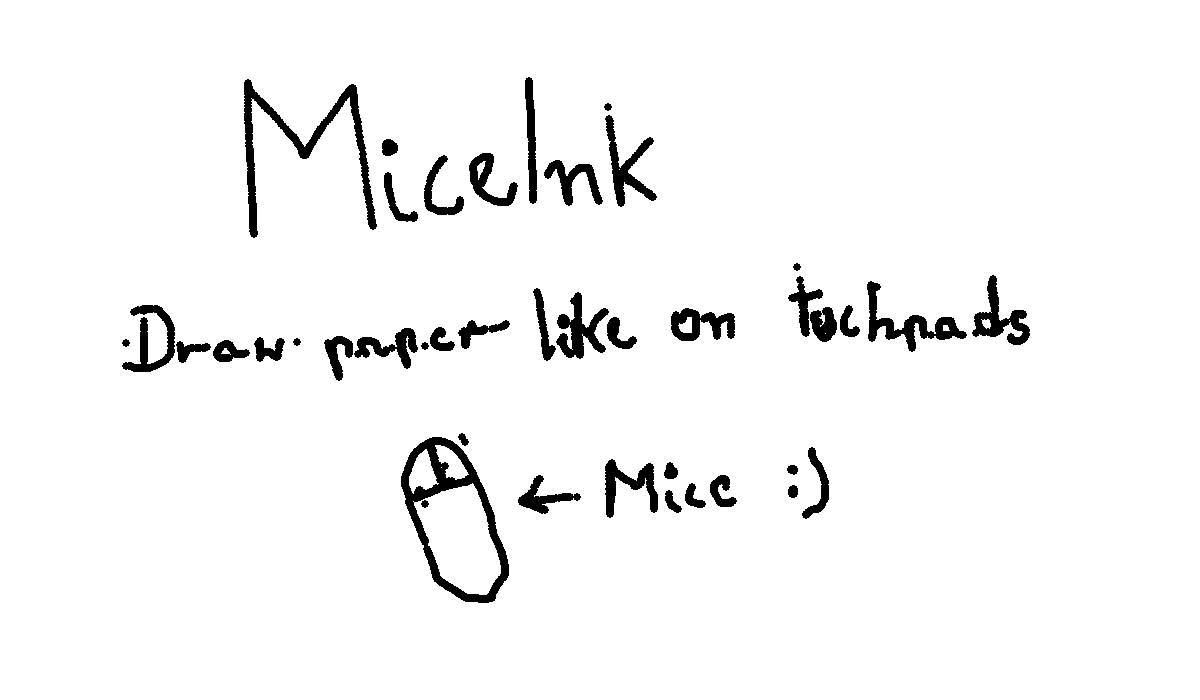 MiceInk
Draw like on tuchpads
← Mice :)